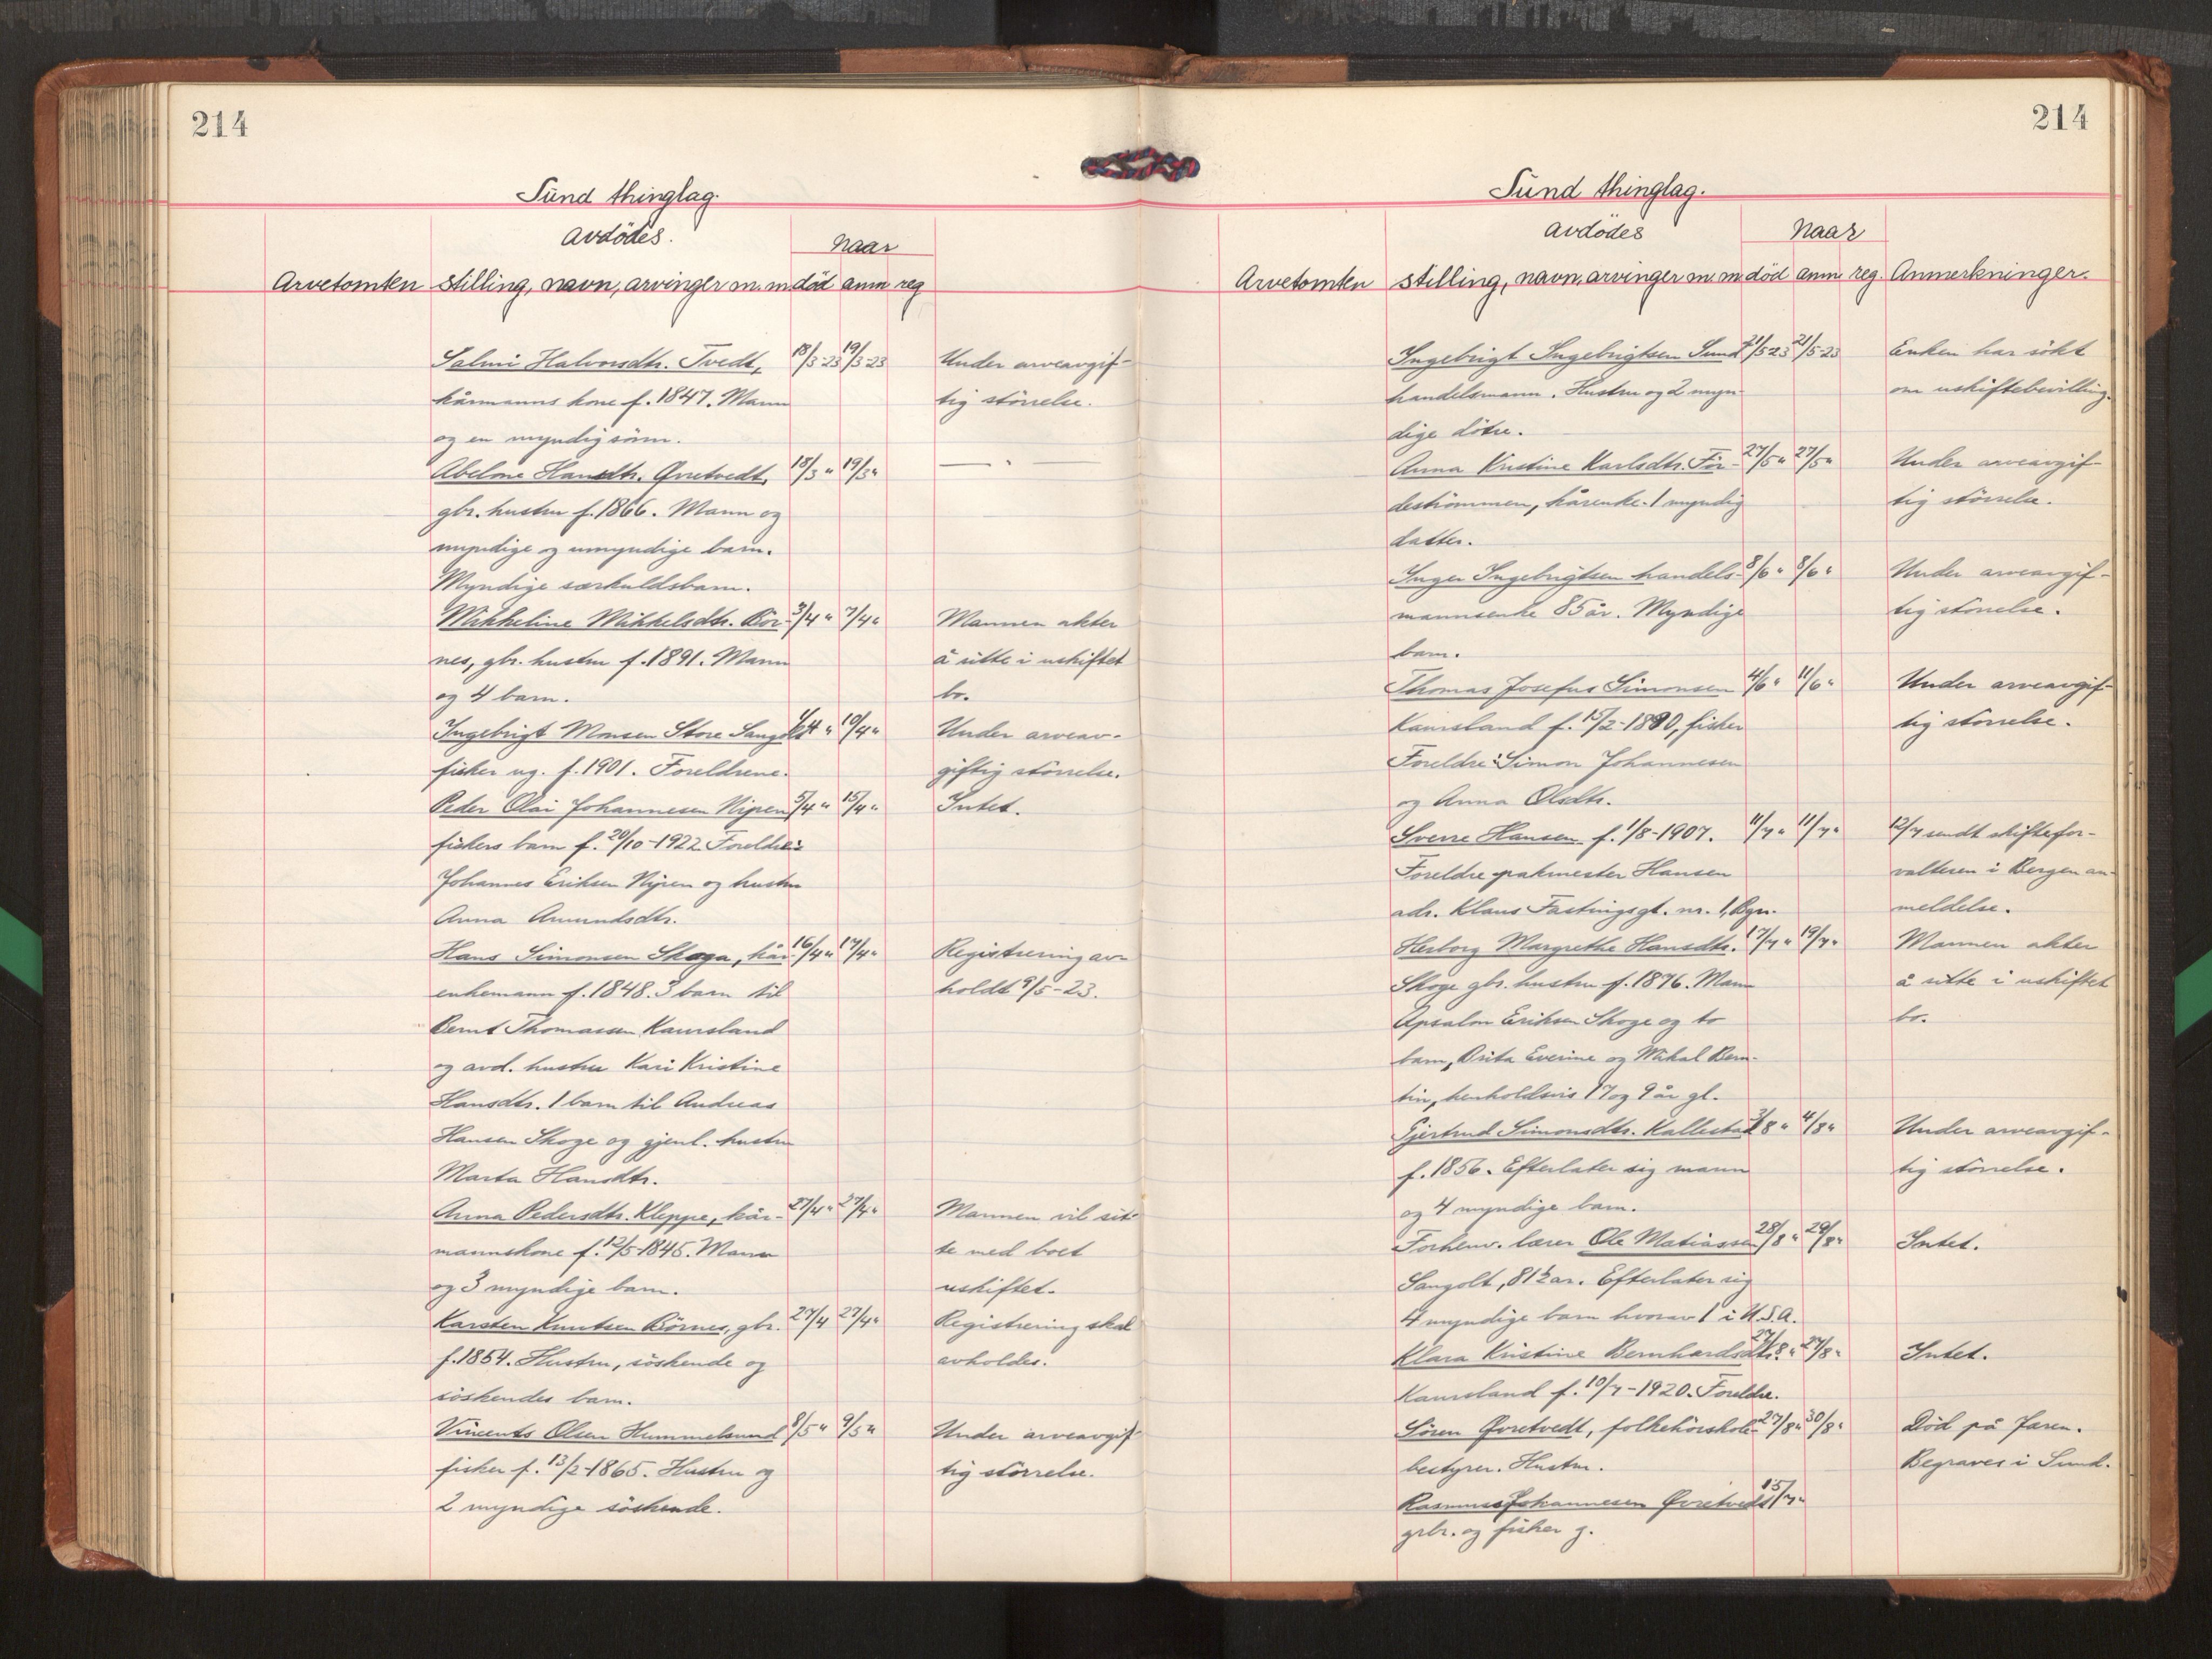 214
Sünd thinglag.
avdödes. naar
Arvetomten stilling, navn, arvinger m.m. död anm reg
Salmi Halvorsdtr. Tvedt, 18/3-23 19/3-23 Under arveavgif-
kårmanns kone f. 1847. Mann tig störrelse.
og en myndig sönn.
Abelone Hansdtr. Övretvedt, 18/3 " 19/3 " — " —
gbr. hustru f. 1866. Mann og
myndige og umyndige barn.
Myndige særkuldsbarn.
Mikkeline Mikkelsdtr. Bör- 3/4 " 7/4 " Mannen akter
nes, gbr. hustru f. 1891. Mann å sitte i uskiftet
og 4 barn. bo.
Ingebrigt Monsen Store Sangolt 4 " 10/4 " Under arveav-
fisker ug. f. 1901. Foreldrene. giftig störrelse.
Peder Olai Johannesen Nipen, 5/4 " 15/4 " Intet.
fiskers barn f. 20/10-1922. Foreldre:
Johannes Eriksen Nipen og hustru
Anna Amundsdtr.
Hans Simonsen Skoga, kår- 16/4 " 17/4 " Registrering av-
enkemann f. 1848. 3 barn til holdt 9/5-23.
Bernt Thomassen Kausland
og avd. hustru Kari Kristine
Hansdtr. 1 barn til Andreas
Hansen Skoge og gjenl. hustru
Marta Hansdtr.
Anna Pedersdtr. Kleppe, kår- 27/4 " 27/4 " Mannen vil sit-
mannskone f. 12/5-1845. Mann te med boet
og 3 myndige barn. uskiftet.
Karsten Knutsen Börnes, gbr. 27/4 27/4 " Registrering skal
f. 1854. Hustru, söskende og avholdes.
söskendes barn.
Vincents Olsen Hummelsund 8/5 " 9/5 " Under arveavgif-
fisker f. 13/2-1865. Hustru og tig störrelse.
2 myndige söskende.
214
Sünd thinglag.
avdödes naar
Arvetomten stilling, navn, arvinger m.m. död anm reg. Anmerkninger.
Ingebrigt Ingebrigtsen Sund 21/5-23 21/5-23 Enken har sökt
handelsmann. Hustru og 2 myn- om uskiftebevilling.
dige dötre.
Anna Kristine Karlsdtr. För- 27/5 " 27/5 " Under arveavgif-
deströmmen, kårenke. 1 myndig tig störrelse.
datter.
Inger Ingebrigtsen handels- 8/6 " 8/6 " Under arveavgif-
mannsenke 85 år. Myndige tig störrelse.
barn.
Thomas Josefus Simonsen 4/6 " 11/6 " Under arveavgif-
Kausland f. 15/2-1890, fisker tig störrelse.
Foreldre: Simon Johannesen
og Anna Olsdtr.
Sverre Hansen f. 1/8-1907. 11/7 " 11/7 " 12/7 sendt skiftefor-
Foreldre pakmester Hansen valteren i Bergen an-
adr. Klaus Fastingsgt. nr. 1, Bgn. meldelse.
Herborg Margrethe Hansdtr. 17/7 " 19/7 " Mannen akter
Skoge gbr. hustru f. 1876. Mann å sitte i uskiftet
Apsalon Eriksen Skoge og to bo.
barn, Brita Everine og Mikal Bern-
tin, henholdsvis 17 og 9 år gl.
Gjertrud Simonsdtr. Kallestad 3/8 " 4/8 " Under arveavgif-
f. 1856. Efterlater sig mann tig störrelse.
og 4 myndige barn.
Forhenv. lærer Ole Matiassen 28/8 " 29/8 " Intet.
Sangolt, 81½ år. Efterlater sig
4 myndige barn hvorav 1 i U.S.A.
Klara Kristine Bernhardsdtr. 27/8 " 27/8 " Intet.
Kausland f. 10/7-1920. Foreldre.
Sören Övretvedt, folkehöiskole- 27/8 " 30/8 " Död på Jæren.
bestyrer. Hustru. Begraves i Sund.
Rasmus Johannesen Övretvedt 15/7 "
grbr. og fisker g.